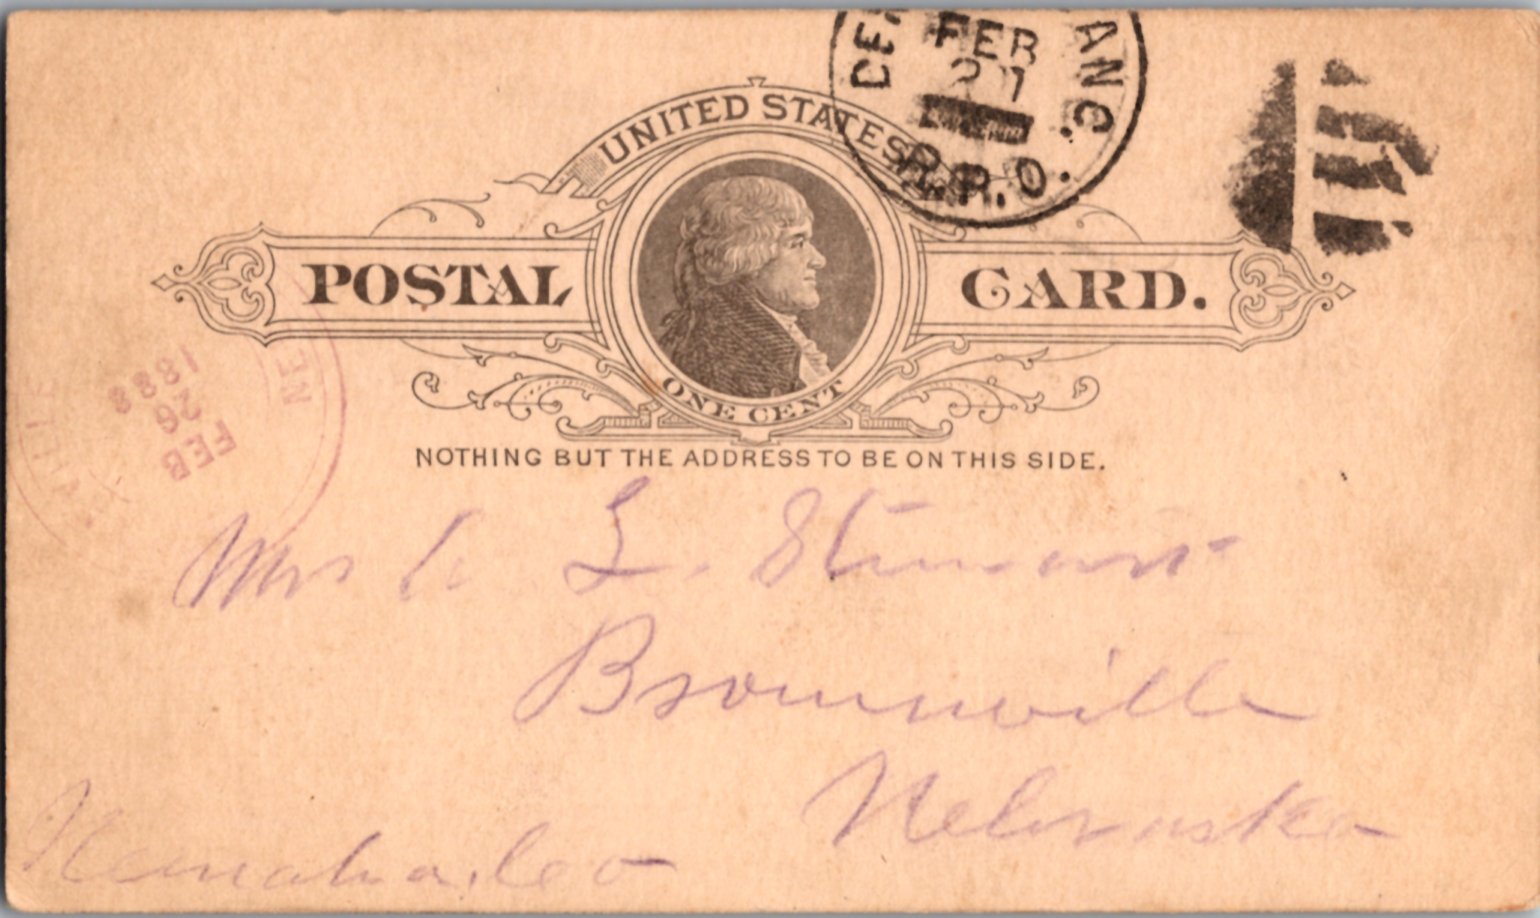 UNITED STATES
POSTAL CARD.
ONE CENT
NOTHING BUT THE ADDRESS TO BE ON THIS SIDE.
FEB
R.P.O.
FEB
26
1888
Mrs L. Stewart
Brownville
Nebraska
Nemaha Co